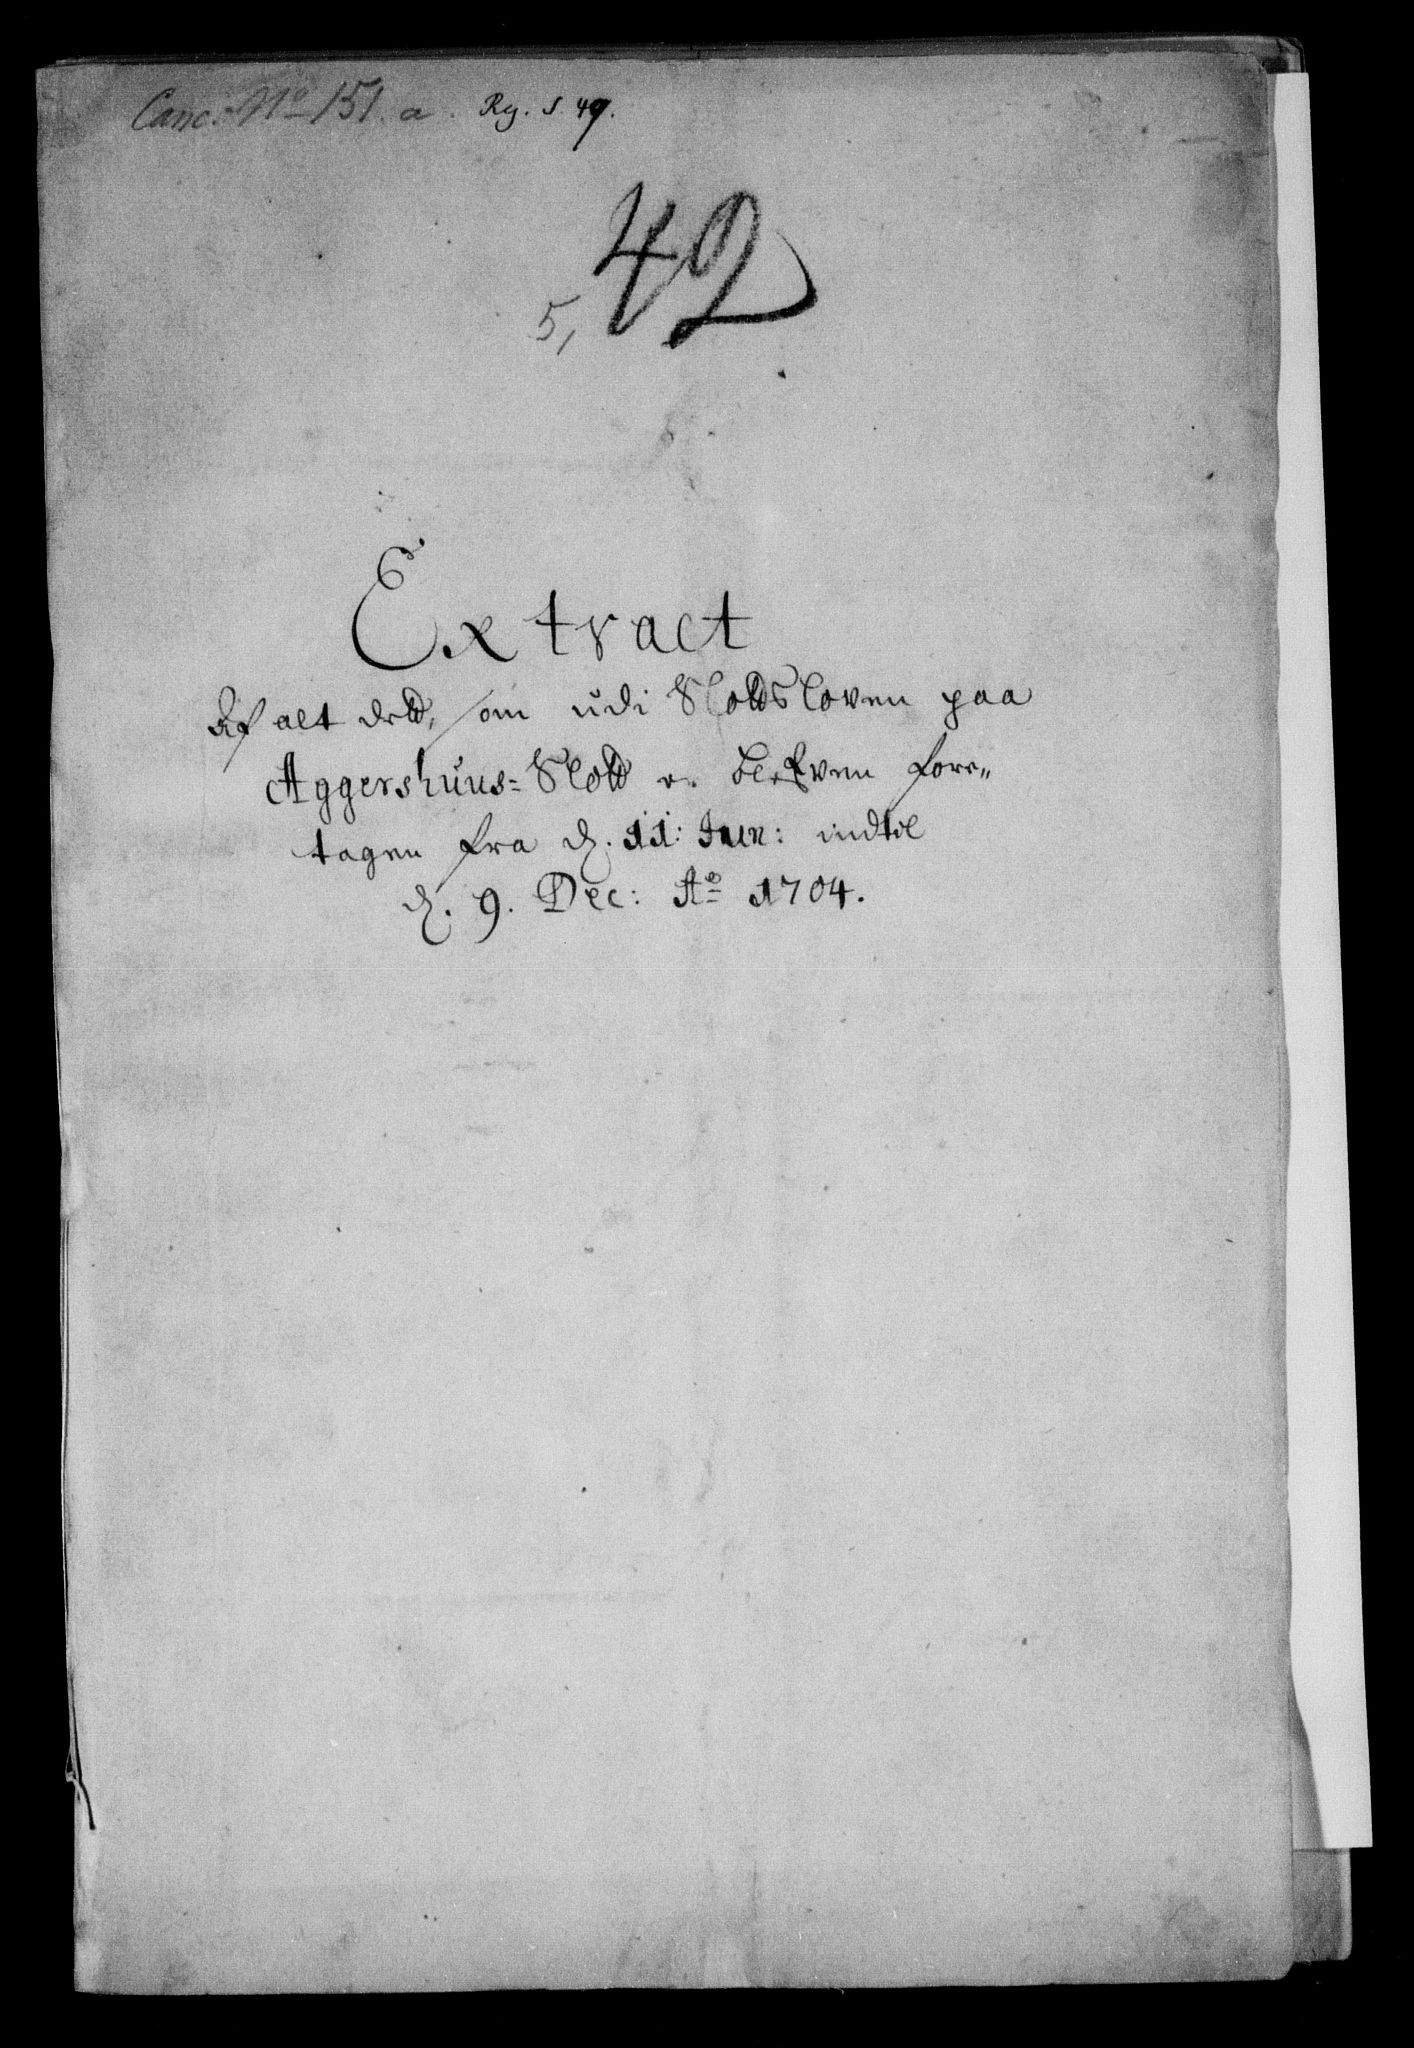 Canc: No 151. a. Reg. S. 49.
42
5,
Extract
Af alt dett, som udi Slotts loven paa
Aggershuus- Slott er blefven fore-
tagen fra d. 11: Jun: indtil
d. 9. Dec: Ao 1704.